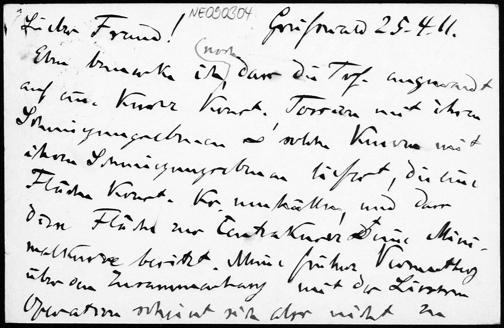 NE090304
Lieber Freund! Greifswald 25.4.11.
Eben bemerke ich, (noch) dass die Tsf. angewandt
auf eine Kurve Konst. Torsion mit ihren
Schmiegungsebenen ∞ solche Kurven mit
ihren Schmiegungsebenen liefert, die eine
Fläche Konst. Kr. umhüllen, und dass
diese Fläche zur Centralkurve eine Mini-
malkurve besitzt. Meine frühere Vermuthung
über den Zusammenhang mit der Lieschen
Operation scheint sich aber nicht zu